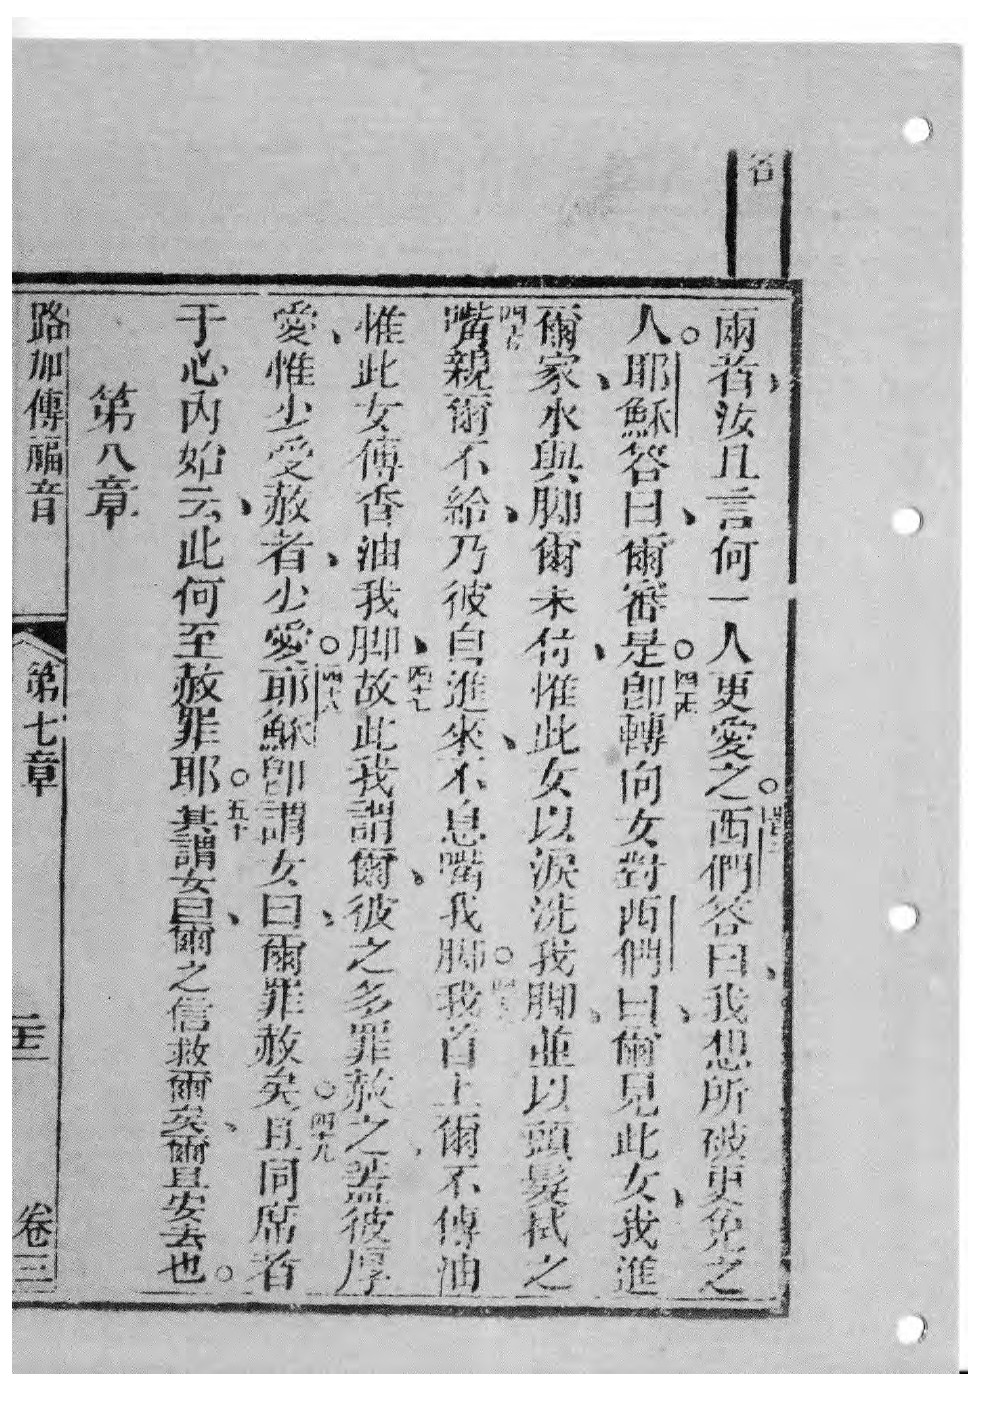 兩者、汝且言何一人更愛之。西們答曰、我想所被更免之
人。耶穌答曰、爾審是。四十四即轉向女對西們曰、爾見此女、我進
爾家、水與脚爾未付、惟此女以淚洗我脚、並以頭髮拭之
四十五嘴親爾不給、乃彼自進來、不息嘴我脚。四十六我首上爾不傅油
惟此女傅香油我脚、四十七故此我謂爾、彼之多罪赦之、蓋彼厚
愛、惟少受赦者、少愛。四十八耶穌即謂女曰、爾罪赦矣。四十九且同席者
于心內始云、此何至赦罪耶。五十其謂女曰、爾之信救爾矣、爾且安去也。
第八章
路加傳福音
第七章
卷三